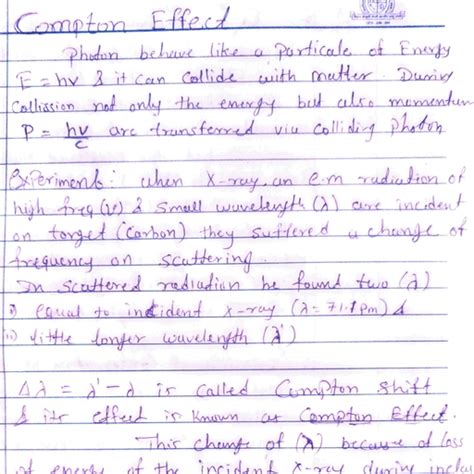 Compton Effect
Photon behave like a Particale of Energy
E = hν & it can Collide with matter. During
Collission not only the energy but also momentum
P = hν/c are transferred via colliding photon.
Experiment: when X-ray, an e.m radiation of
high freq (ν) & small wavelength (λ) are incident
on target (Carbon) they suffered a change of
frequency on scattering.
In scattered radiation he found two (λ)
i) equal to incident x-ray (λ = 71.1 pm) &
ii) little longer wavelength (λ')
Δλ = λ' - λ is called Compton Shift
& its effect is known as Compton Effect.
This change of (λ) because of loss
of energy of the incident x-ray during